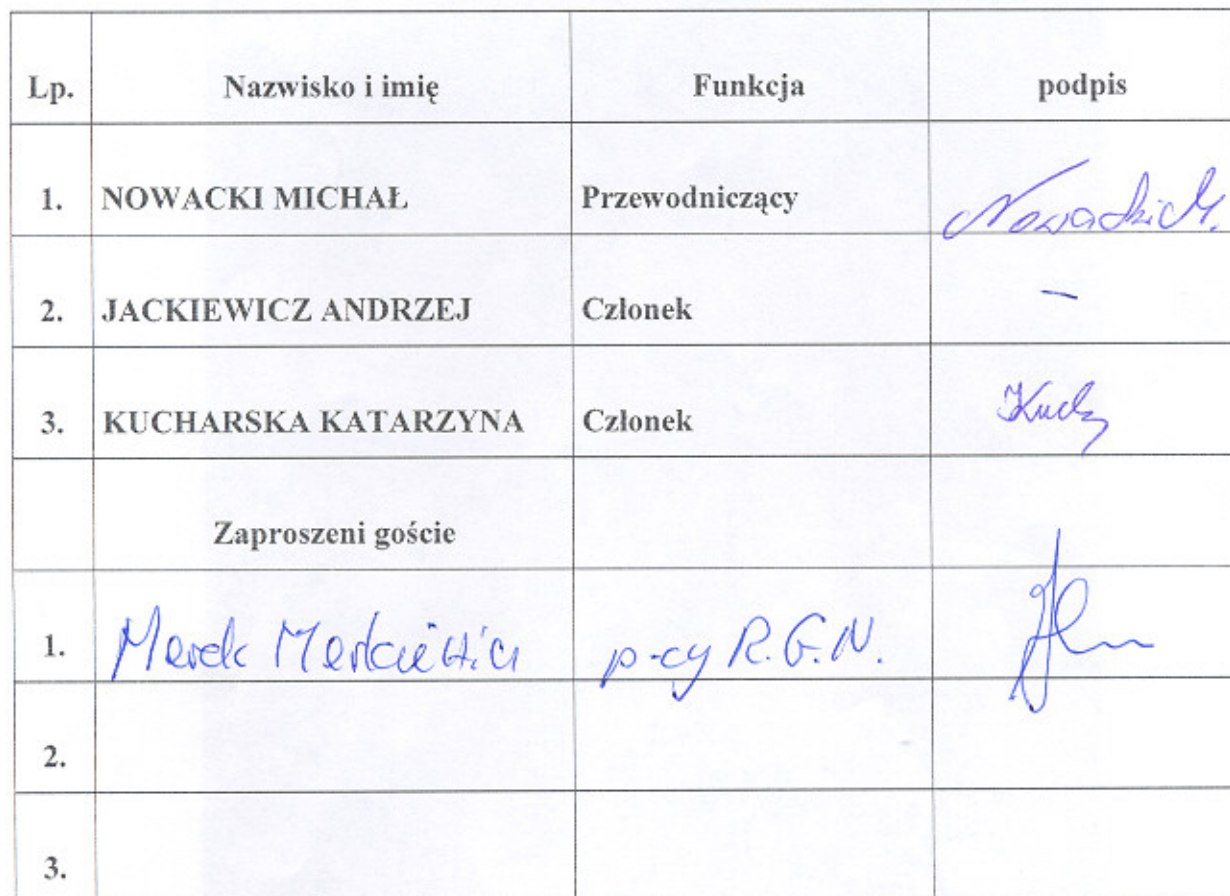 Lp. Nazwisko i imię Funkcja podpis
1. NOWACKI MICHAŁ Przewodniczący Nowacki M.
2. JACKIEWICZ ANDRZEJ Członek –
3. KUCHARSKA KATARZYNA Członek
Zaproszeni goście
1. Marek p-cy R.G.N.
2.
3.